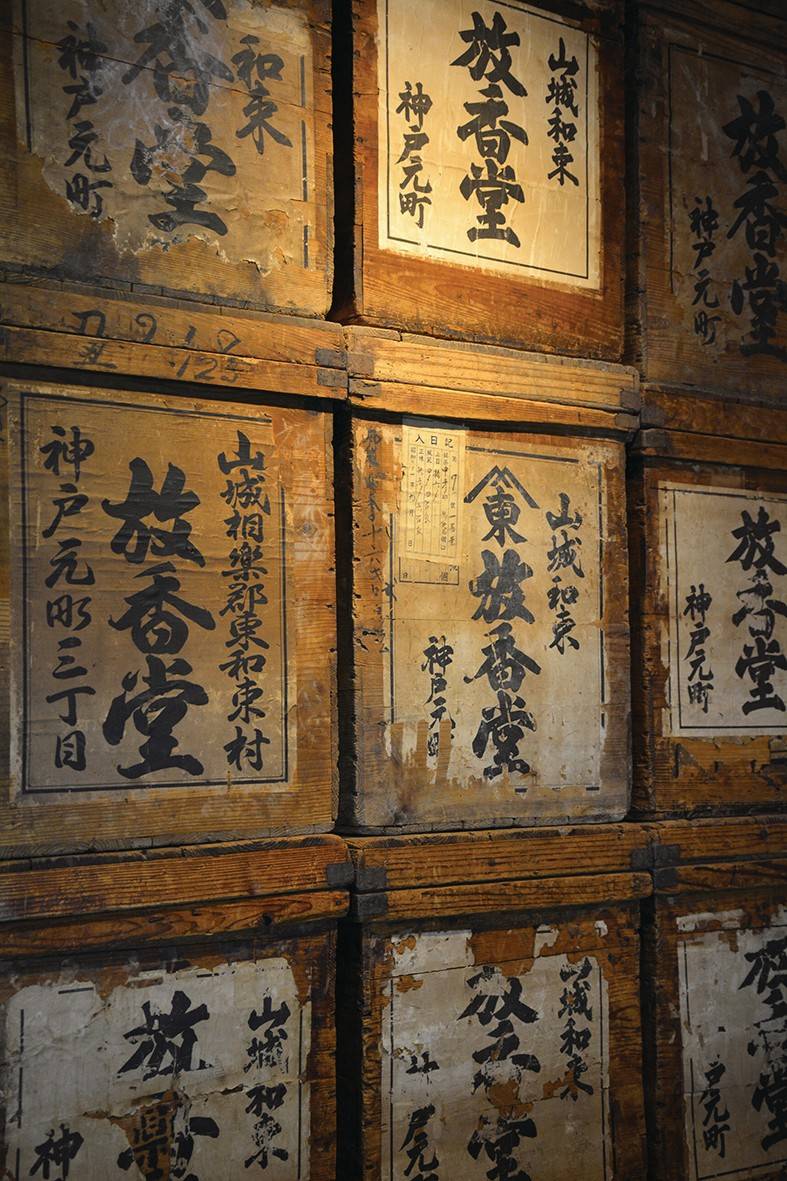 和束
香堂
神戸元町
山城和束
放香堂
神戸元町
放香堂
神戸元町
9 19
125
山城相樂郡東和束村
放香堂
神戸元町三丁目
記日入
山城和束
東
放香堂
神戸元町
放香堂
神戸元町
山城和束
放香
神
山城和束
放香堂
戸元
放香堂
戸元町